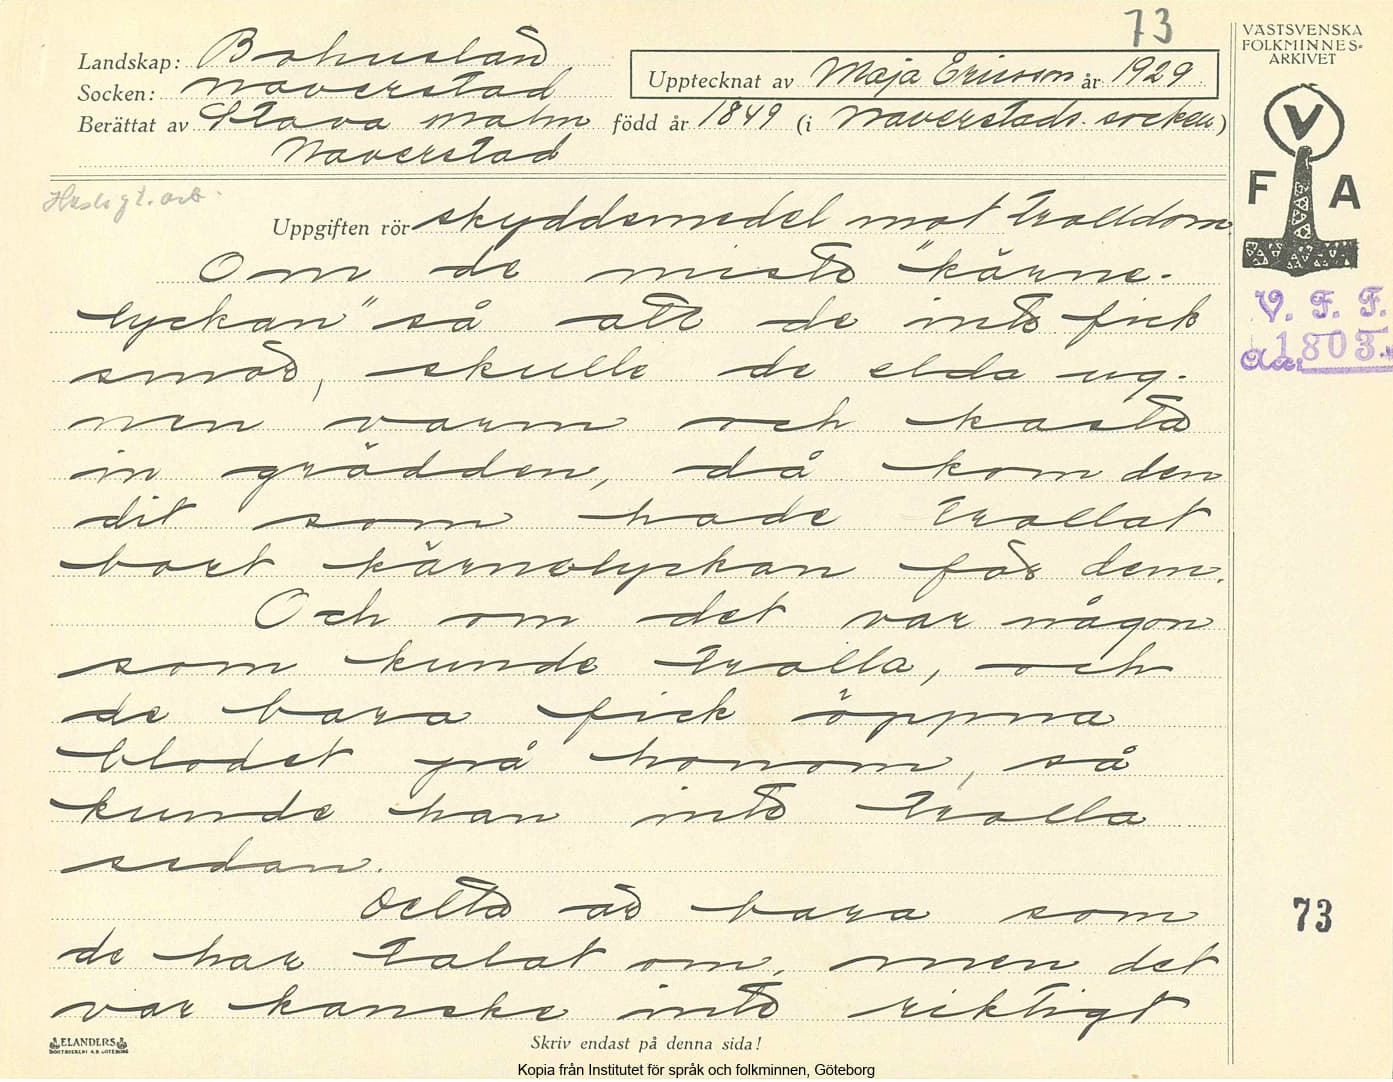 73
Landskap: Bohuslän
Socken: Naverstad
Upptecknat av Maja Ericson år 1929
Berättat av Stava Malm född år 1849 (i Naverstads socken)
Naverstad
VÄSTSVENSKA
FOLKMINNES-
ARKIVET
V
F A
V. F. F.
1803.
Uppgiften rör skyddsmedel mot trolldom
Om de miste "kärne-
lyckan" så att de inte fick
smör, skulle de elda ug-
nen varm och kasta
in grädden, då kom den
dit som hade trollat
bort kärnelyckan för dem.
Och om det var någon
som kunde trolla, och
de bara fick öppna
blodet på honom, så
kunde han inte trolla
sedan.
Detta är bara som
de har talat om, men det
var kanske inte riktigt
73
ELANDERS
Skriv endast på denna sida!
Kopia från Institutet för språk och folkminnen, Göteborg